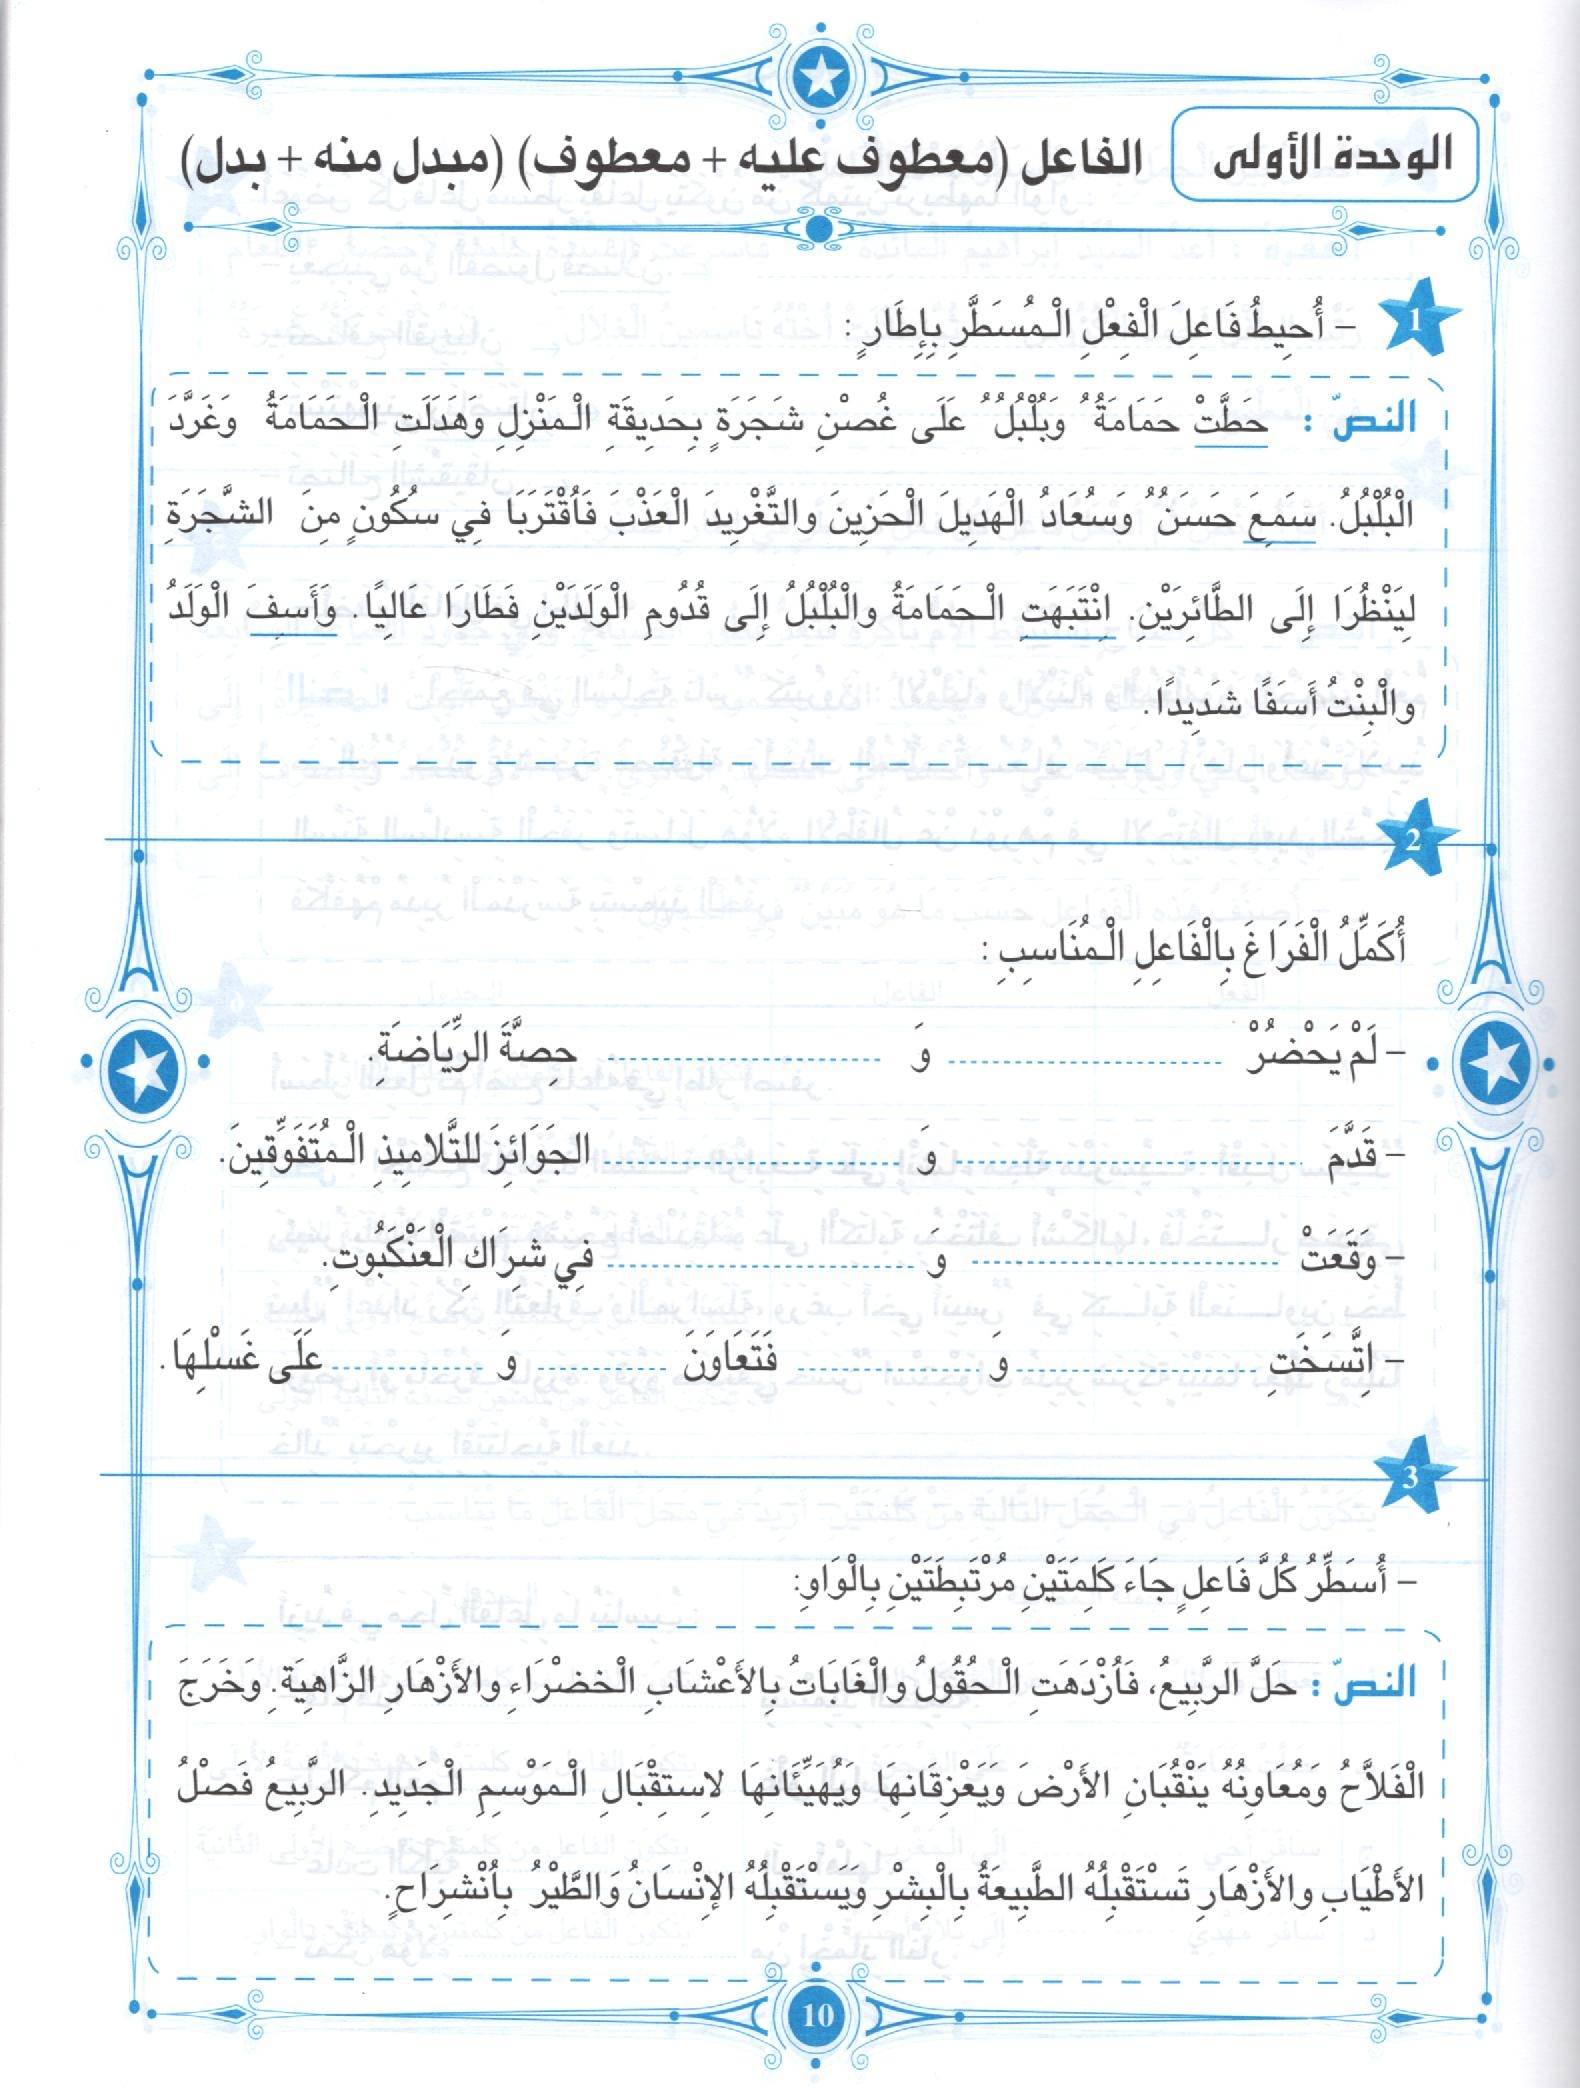 الوحدة الأولى
الفاعل (معطوف عليه + معطوف) (مبدل منه + بدل)
1
– أُحِيطُ فَاعِلَ الْفِعْلِ الْمُسَطَّرِ بِإِطَارٍ :
النصّ : حَطَّتْ حَمَامَةٌ وَبُلْبُلٌ عَلَى غُصْنِ شَجَرَةٍ بِحَدِيقَةِ الْمَنْزِلِ وَهَدَلَتِ الْحَمَامَةُ وَغَرَّدَ
الْبُلْبُلُ. سَمِعَ حَسَنٌ وَسُعَادُ الْهَدِيلَ الْحَزِينَ والتَّغْرِيدَ الْعَذْبَ فَاُقْتَرَبَا فِي سُكُونٍ مِنَ الشَّجَرَةِ
لِيَنْظُرَا إِلَى الطَّائِرَيْنِ. اِنْتَبَهَتِ الْحَمَامَةُ والْبُلْبُلُ إِلَى قُدُومِ الْوَلَدَيْنِ فَطَارَا عَالِيًا. وَأَسِفَ الْوَلَدُ
والْبِنْتُ أَسَفًا شَدِيدًا.
2
أُكَمِّلُ الْفَرَاغَ بِالْفَاعِلِ الْمُنَاسِبِ :
– لَمْ يَحْضُرْ ........................ وَ ........................ حِصَّةَ الرِّيَاضَةِ.
– قَدَّمَ ........................ وَ ........................ الجَوَائِزَ للتَّلامِيذِ الْمُتَفَوِّقِينَ.
– وَقَعَتْ ........................ وَ ........................ فِي شِرَاكِ الْعَنْكَبُوتِ.
– اِتَّسَخَتِ ........................ وَ ................ فَتَعَاوَنَ ............ وَ ................ عَلَى غَسْلِهَا.
3
– أُسَطِّرُ كُلَّ فَاعِلٍ جَاءَ كَلِمَتَيْنِ مُرْتَبِطَتَيْنِ بِالْوَاوِ:
النصّ : حَلَّ الرَّبِيعُ، فَاُزْدَهَتِ الْحُقُولُ والْغَابَاتُ بِالأَعْشَابِ الْخضْرَاءِ والأَزْهَارِ الزَّاهِيَةِ. وَخَرَجَ
الْفَلاَّحُ وَمُعَاوِنُهُ يَنْقُبَانِ الأَرْضَ وَيَعْزِقَانِهَا وَيُهَيِّئَانِهَا لاِستِقْبَالِ الْمَوْسِمِ الْجَدِيدِ. الرَّبِيعُ فَصْلُ
الأَطْيَابِ والأَزْهَارِ تَسْتَقْبِلُهُ الطَّبِيعَةُ بِالْبِشْرِ وَيَسْتَقْبِلُهُ الإِنْسَانُ وَالطَّيْرُ بِاُنْشِرَاحٍ.
10